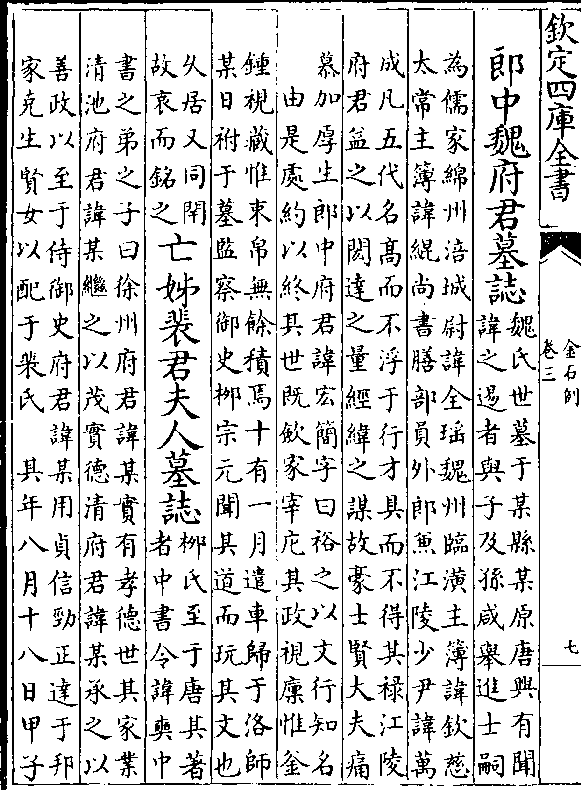 欽定四庫全書
金石例
卷三
七
郎中魏府君墓誌
魏氏世墓于某縣某原唐興有聞
諱之逷者與子及孫咸舉進士嗣
為儒家綿州涪城尉諱全瑶魏州臨潢主簿諱欽慈
太常主簿諱緄尚書膳部員外郎兼江陵少尹諱萬
成凡五代名髙而不浮于行才具而不得其禄江陵
府君益之以閎達之量經緯之謀故豪士賢大夫痛
慕加厚生郎中府君諱宏簡字曰裕之以文行知名
由是處約以終其世既歛家宰庀其政視廩惟釜
鍾視藏惟束帛無餘積焉十有一月遣車歸于洛師
某日祔于墓監察御史栁宗元聞其道而玩其文也
乆居又同閈
故哀而銘之
亡姊裴君夫人墓誌
栁氏至于唐其著
者中書令諱奭中
書之弟之子曰徐州府君諱某實有孝德世其家業
清池府君諱某繼之以茂實德清府君諱某承之以
善政以至于侍御史府君諱某用貞信勁正達于邦
家克生賢女以配于裴氏　其年八月十八日甲子